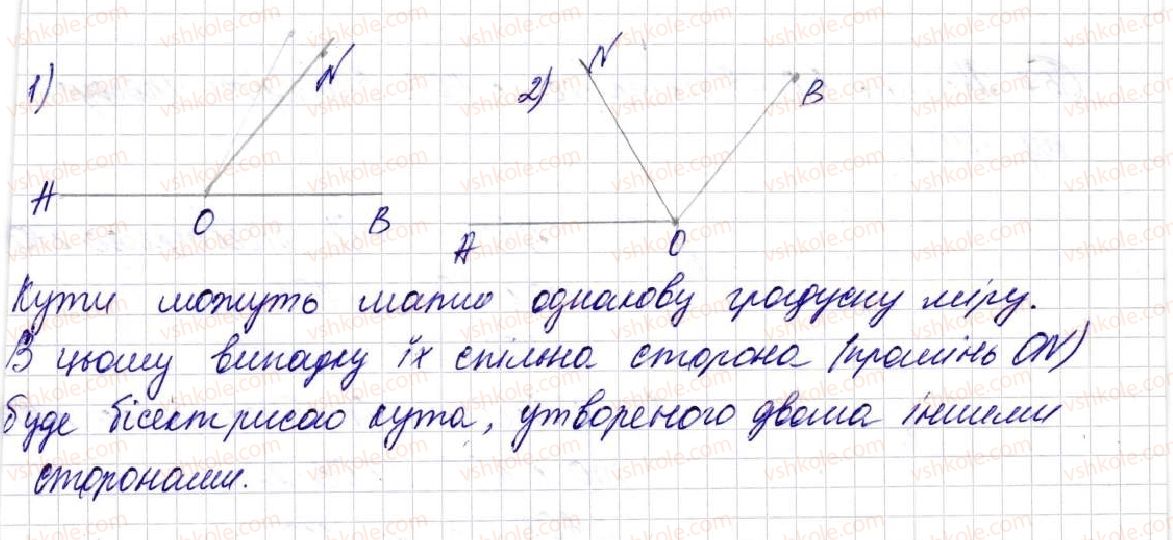 1)
N
A
O
B
2)
N
B
A
O
Кути можуть мати однакову градусну міру.
В цьому випадку їх спільна сторона (промінь ON)
буде бісектрисою кута, утвореного двома іншими
сторонами.
vshkole.com